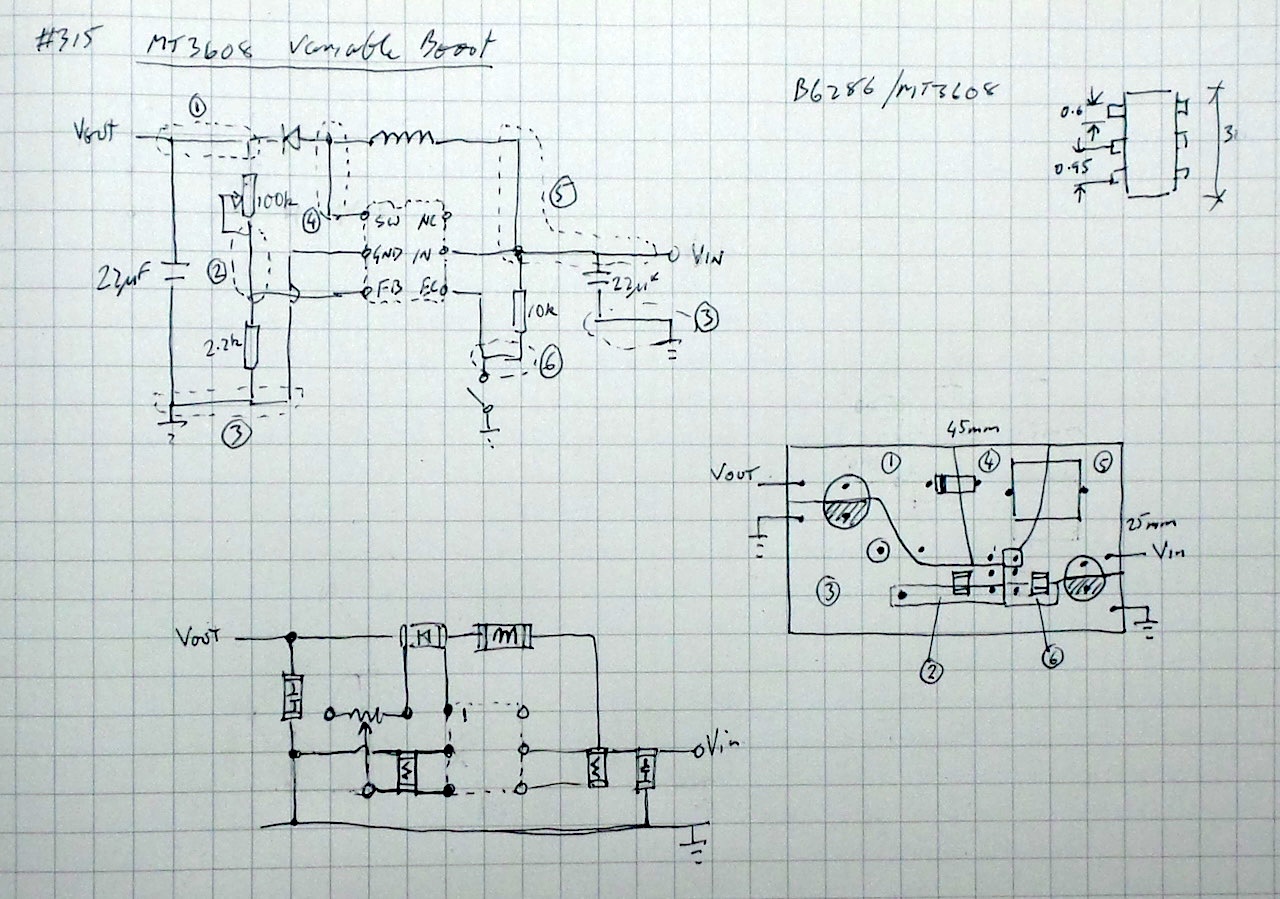 #315 MT3608 Variable Boost
B6286/MT3608
0.6
0.95
3
VOUT
①
100k
④
SW NC
GND IN
FB EN
⑤
VIN
22µF
②
22µF
2.2k
10k
③
⑥
③
45mm
VOUT
①
④
⑤
25mm
Vin
③
②
⑥
VOUT
1
Vin